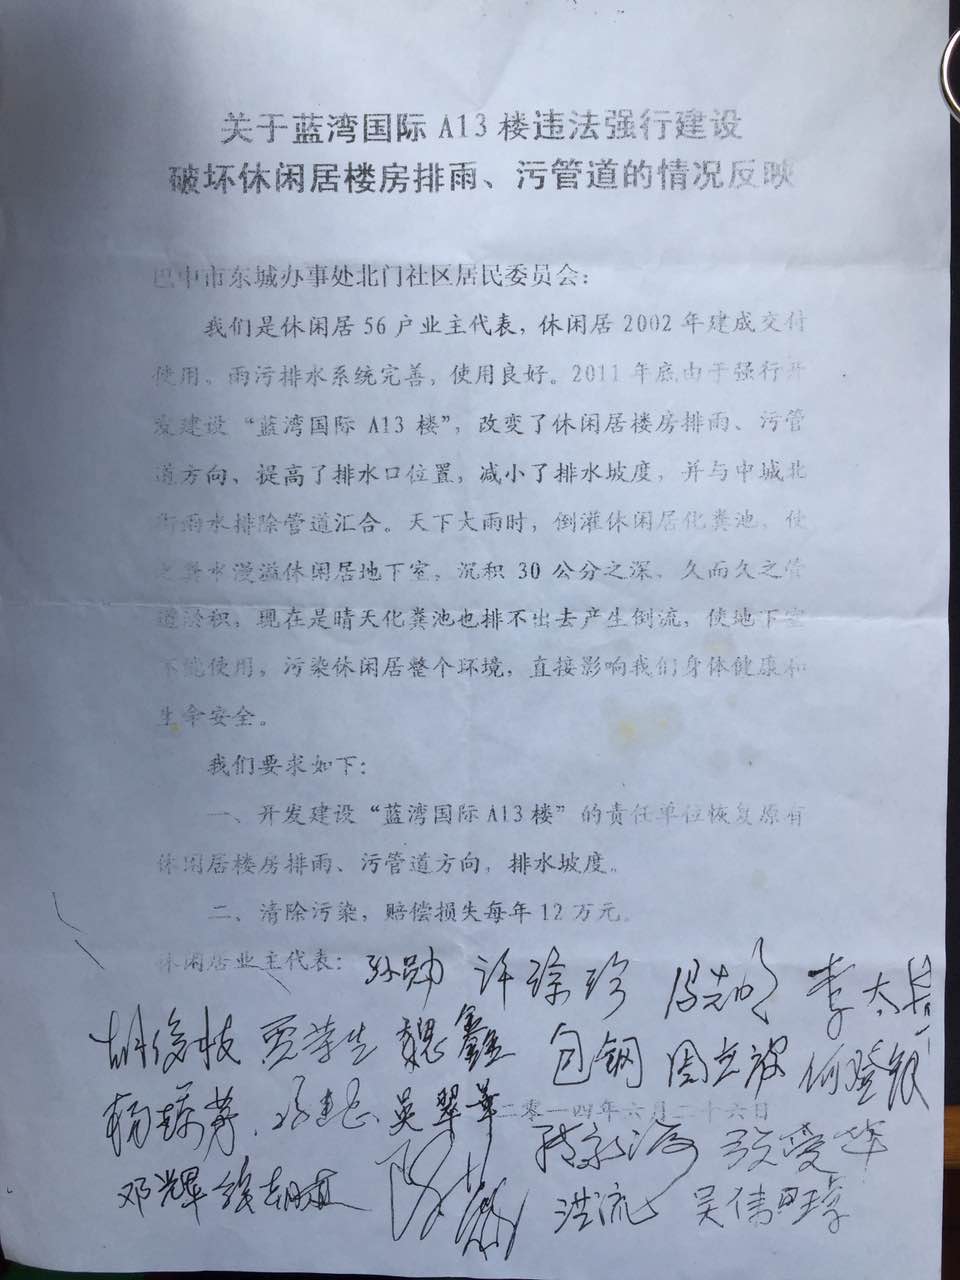 关于蓝湾国际 A13 楼违法强行建设
破坏休闲居楼房排雨、污管道的情况反映
巴中市东城办事处北门社区居民委员会：
我们是休闲居 56 户业主代表，休闲居 2002 年建成交付
使用。雨污排水系统完善，使用良好。2011 年底由于强行开
发建设“蓝湾国际 A13 楼”，改变了休闲居楼房排雨、污管
道方向、提高了排水口位置，减小了排水坡度，并与中城北
街雨水排除管道汇合。天下大雨时，倒灌休闲居化粪池，使
之粪水漫溢休闲居地下室，沉积 30 公分之深，久而久之管
道淤积，现在是晴天化粪池也排不出去产生倒流，使地下室
不能使用，污染休闲居整个环境，直接影响我们身体健康和
生命安全。
我们要求如下：
一、开发建设“蓝湾国际 A13 楼”的责任单位恢复原有
休闲居楼房排雨、污管道方向，排水坡度。
二、清除污染，赔偿损失每年 12 万元。
休闲居业主代表：孙勋 许琼珍 李大
胡俊枝 贾荣生 魏鑫 包钢 周立波 何登银
杨琼芳 吴翠华 二零一四年六月二十六日
张爱华
邓辉 洪流 吴倩